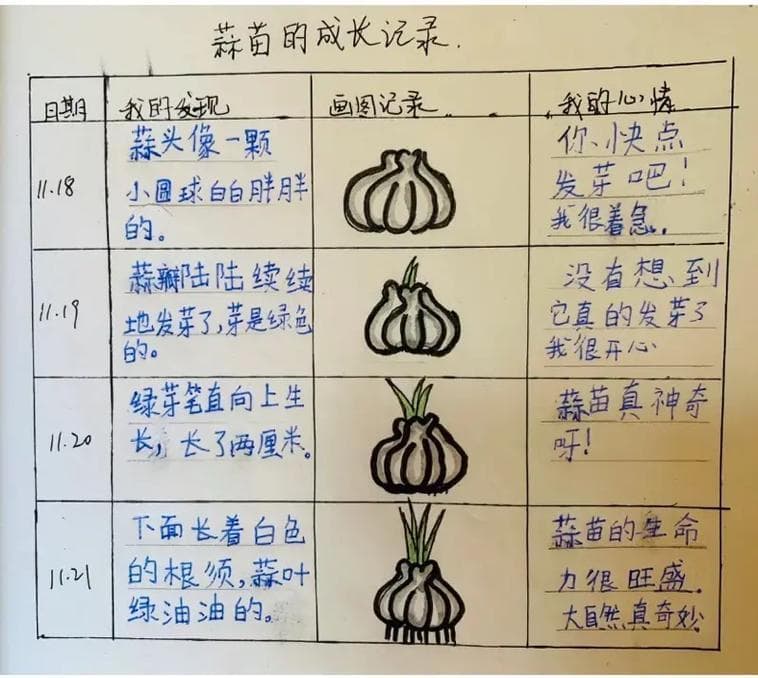 蒜苗的成长记录.
日期 我的发现 画图记录 我的心情
11.18
蒜头像一颗
小圆球白白胖胖
的。
你快点
发芽吧!
我很着急.
11.19
蒜瓣陆陆续续
地发芽了,芽是绿色
的。
没有想到
它真的发芽了
我很开心
11.20
绿芽笔直向上生
长,长了两厘米。
蒜苗真神奇
呀!
11.21
下面长着白色
的根须,蒜叶
绿油油的。
蒜苗的生命
力很旺盛.
大自然真奇妙.